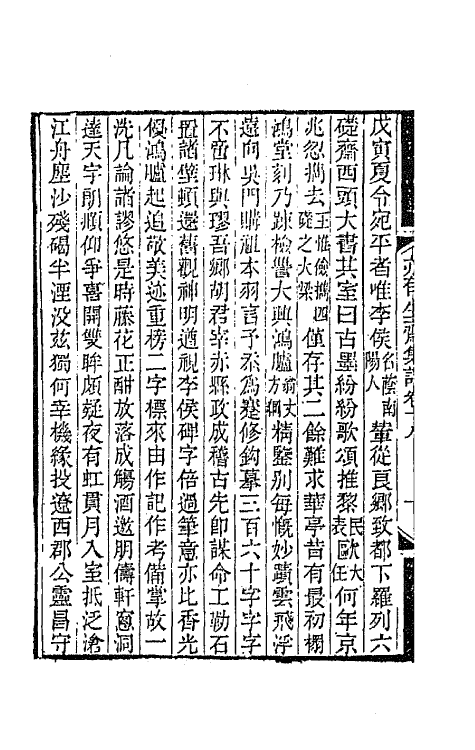 戊寅夏令宛平者唯李侯名蔭南陽人輦從良鄉致都下羅列六
礎齋西頭大書其室曰古墨紛紛歌頌推黎民表歐大任何年京
兆忽攜去王惟儉攜四礎之大梁僅存其二餘難求華亭昔有最初榻
鴻堂刻乃疎檢讐大興鴻臚翁丈方綱精鑒别每慨妙蹟雲飛浮
遠向吳門購祖本羽言予烝為蹇修鈎摹三百六十字字字
不啻琳與璆吾鄉胡君宰赤縣政成稽古先即謀命工勒石
置諸壁頓還舊觀神明遒視李侯碑字倍過筆意亦比香光
優鴻臚起追敬美迹重榜二字標來由作記作考備掌故一
洗凡論諸謬悠是時藤花正酣放落成觴酒邀朋儔軒窻洞
達天宇朗頫仰爭喜開雙眸頗疑夜有虹貫月入室抵泛滄
江舟塵沙殘碣半湮没茲獨何幸機緣投遼西郡公靈昌守